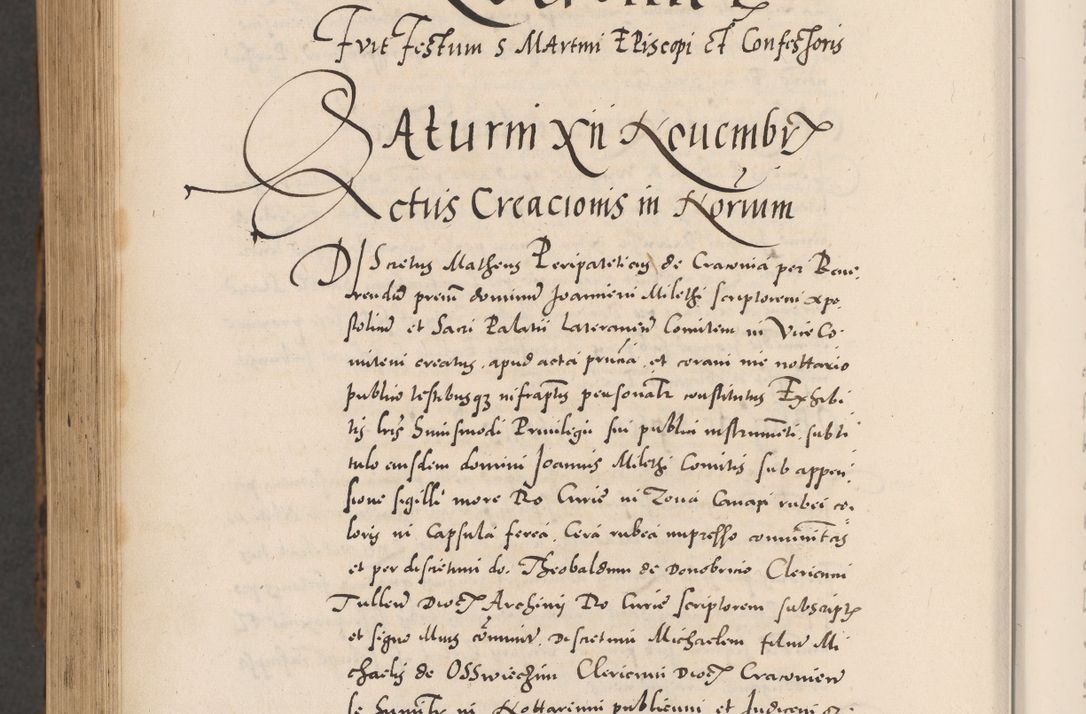 Fuit Festum S Martini Episcopi Et Confessoris
Saturni xii Novembr
Actus Creacionis in Norium
Discretus Matheus Peripateticus de Cracovia per Reve,
rendum prem dominum Joannem Milethi scriptorem apo
stolicum et Sacri Palatii Lateranen Comitem in Vice Co,
mitem creatus, apud acta pntia, et coram me nottario
publico testibusq infraptis personalr constitutus Exhibi
tis lris huiusmodi Privilegii sui publici instrumenti, sub ti
tulo eiusdem domini Joannis Milethi Comitis sub appen,
sione sigilli more Ro Curie in Zona Canapi rubei co,
loris in Capsula ferea, Cera rubea impresso communitas
et per discretum do. Theobaldum de Donobrio Clericum
Tullen Dioc Archivii Ro Curie scriptorem subscript
et signo illius communit, Discretum Michaelem filium Mi
chaelis de Osswieczim Clericum Dioc Cracovien
se humilr in Nottarium publicum et Judicem